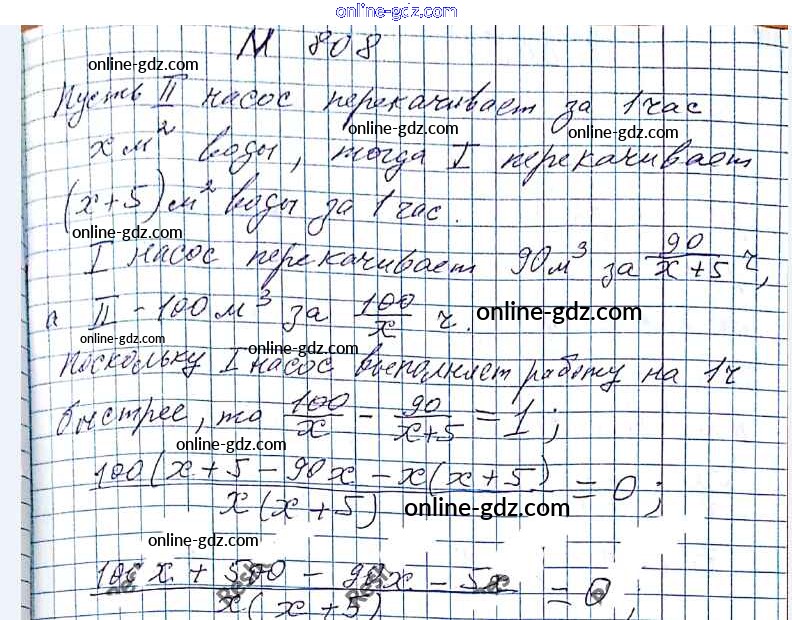 online-gdz.com
№ 808
online-gdz.com
Пусть II насос перекачивает за 1 час
online-gdz.com online-gdz.com
x м² воды, тогда I перекачивает
(x+5) м² воды за 1 час.
online-gdz.com
I насос перекачивает 90 м³ за 90/(x+5) ч,
online-gdz.com
а II - 100 м³ за 100/x ч. online-gdz.com
online-gdz.com
online-gdz.com
Поскольку I насос выполняет работу на 1 ч
быстрее, то 100/x - 90/(x+5) = 1;
online-gdz.com
(100(x+5 - 90x - x(x+5))/(x(x+5)) = 0;
online-gdz.com
online-gdz.com
(100x + 500 - 90x - 5x)/(x(x+5)) = 0;